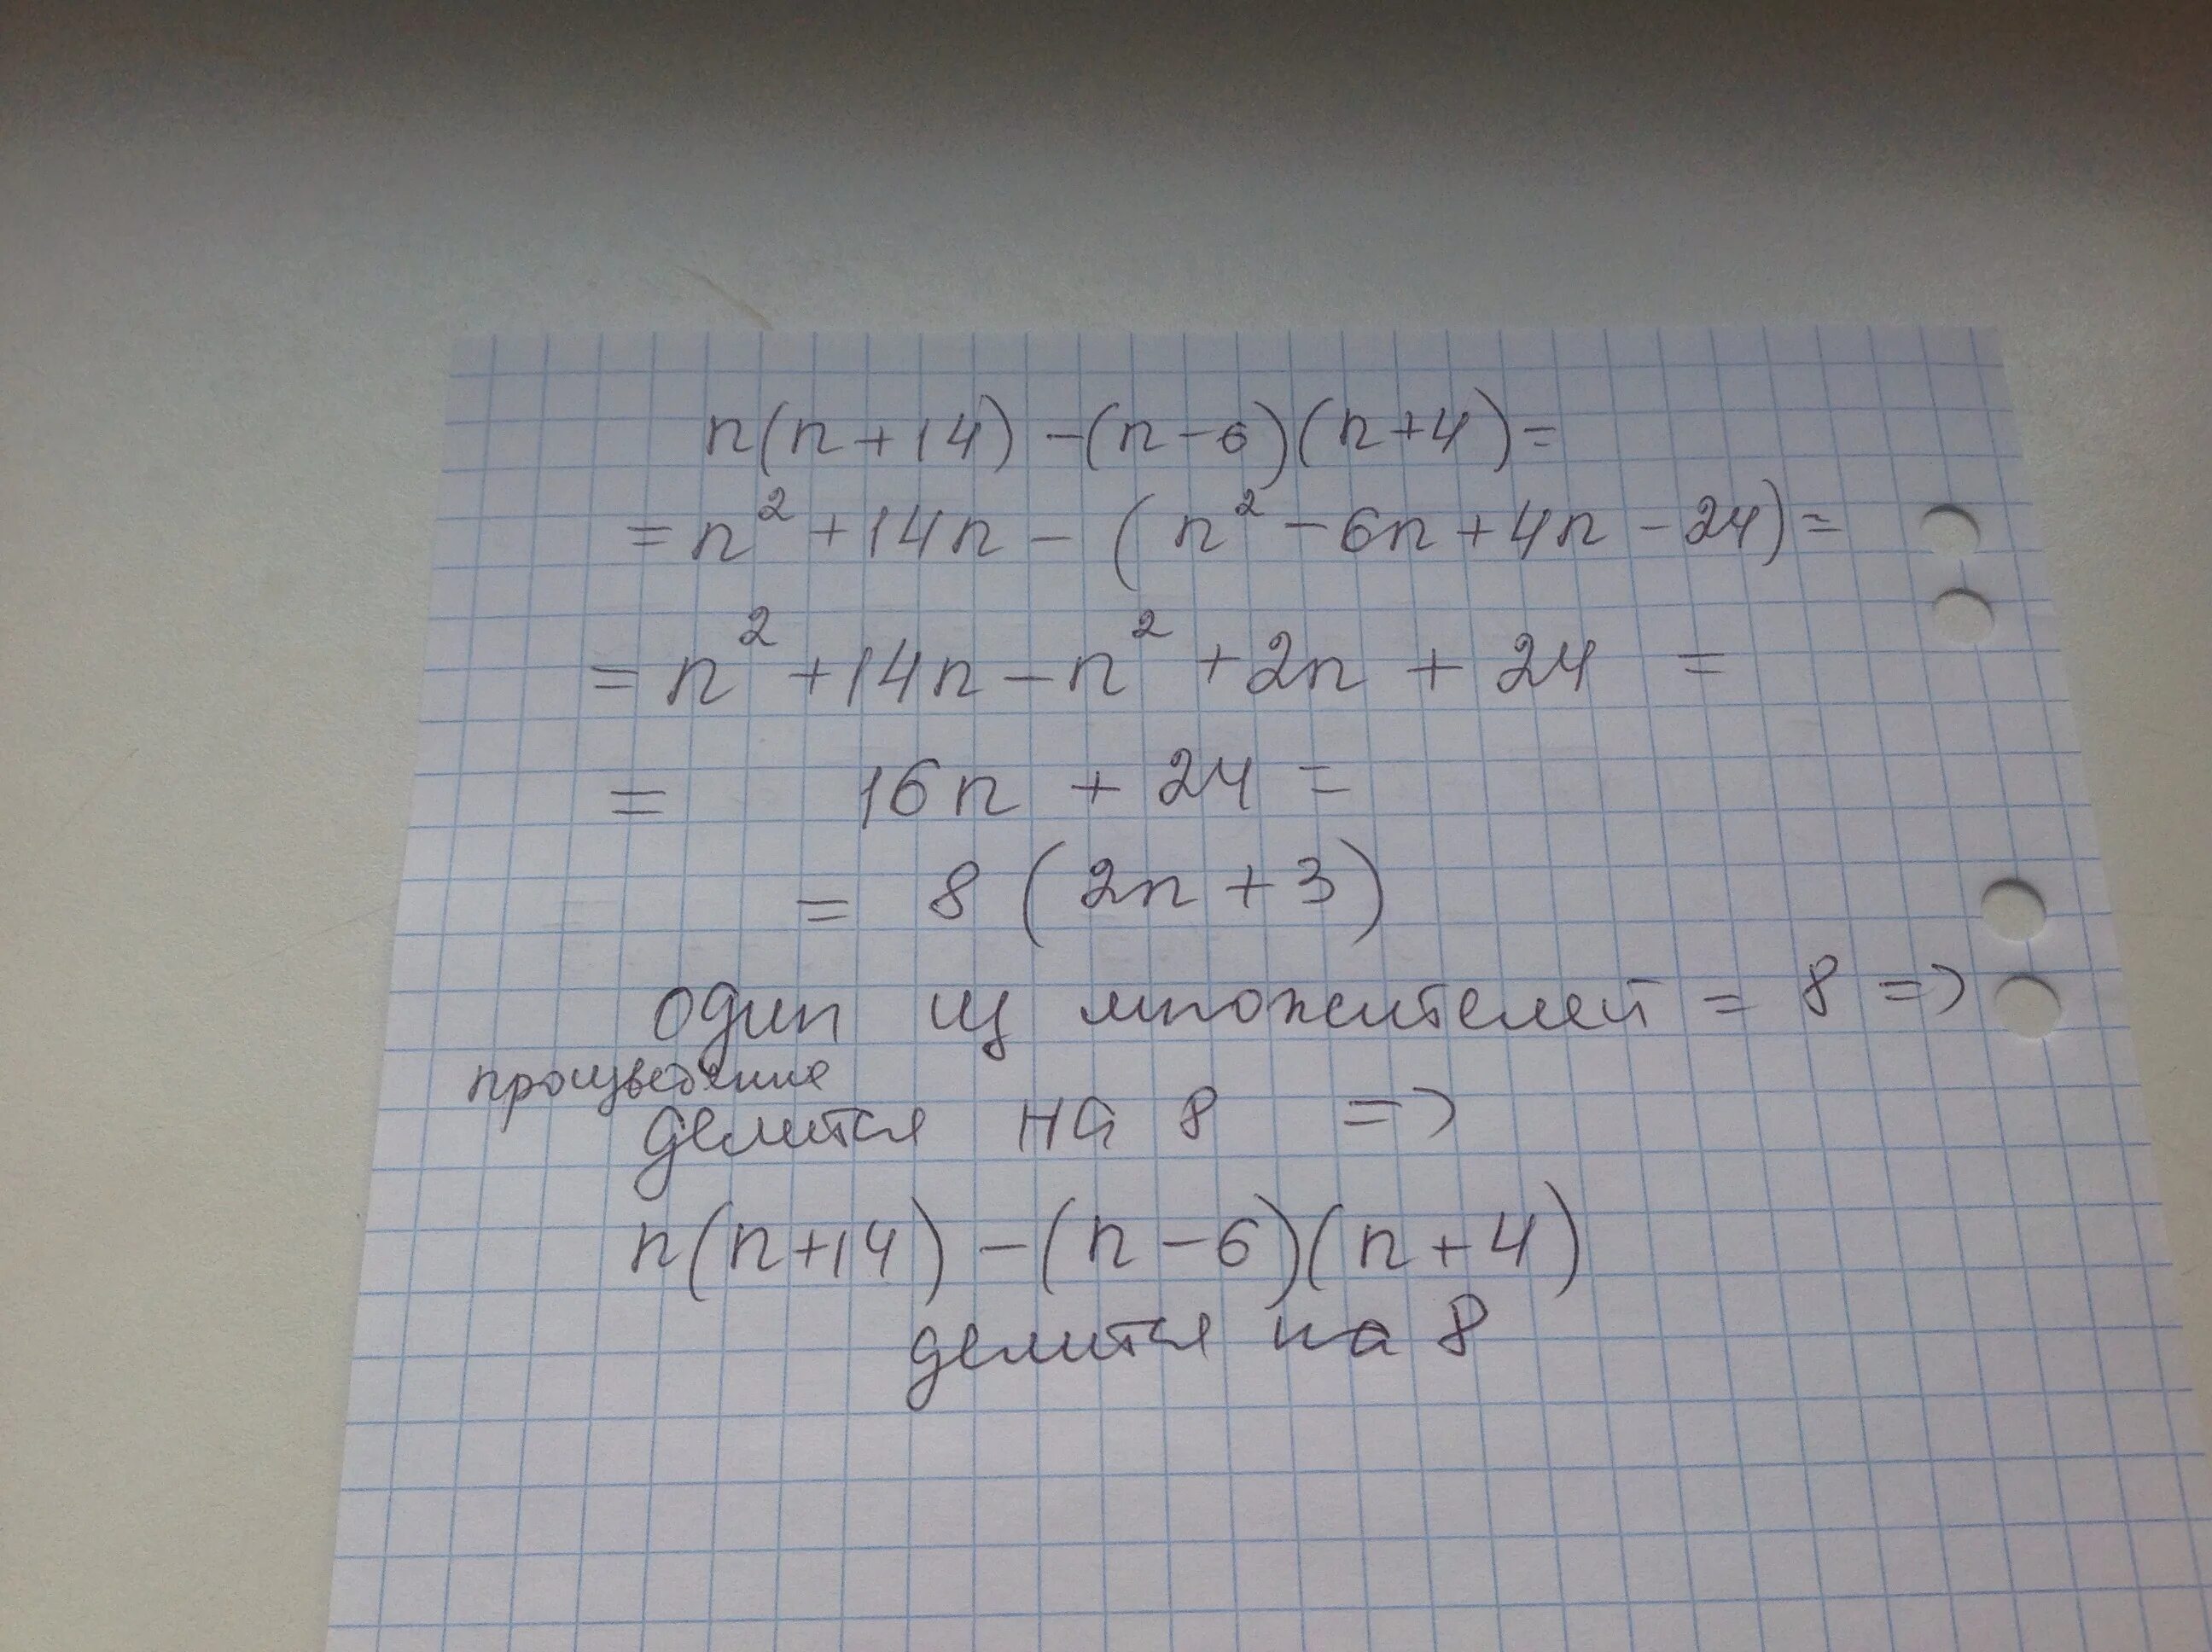 n(n+14)-(n-6)(n+4)=
=n²+14n-(n²-6n+4n-24)=
=n²+14n-n²+2n+24=
= 16n+24=
= 8(2n+3)
один из множителей = 8 =>
произведение
делится на 8 =>
n(n+14)-(n-6)(n+4)
делится на 8